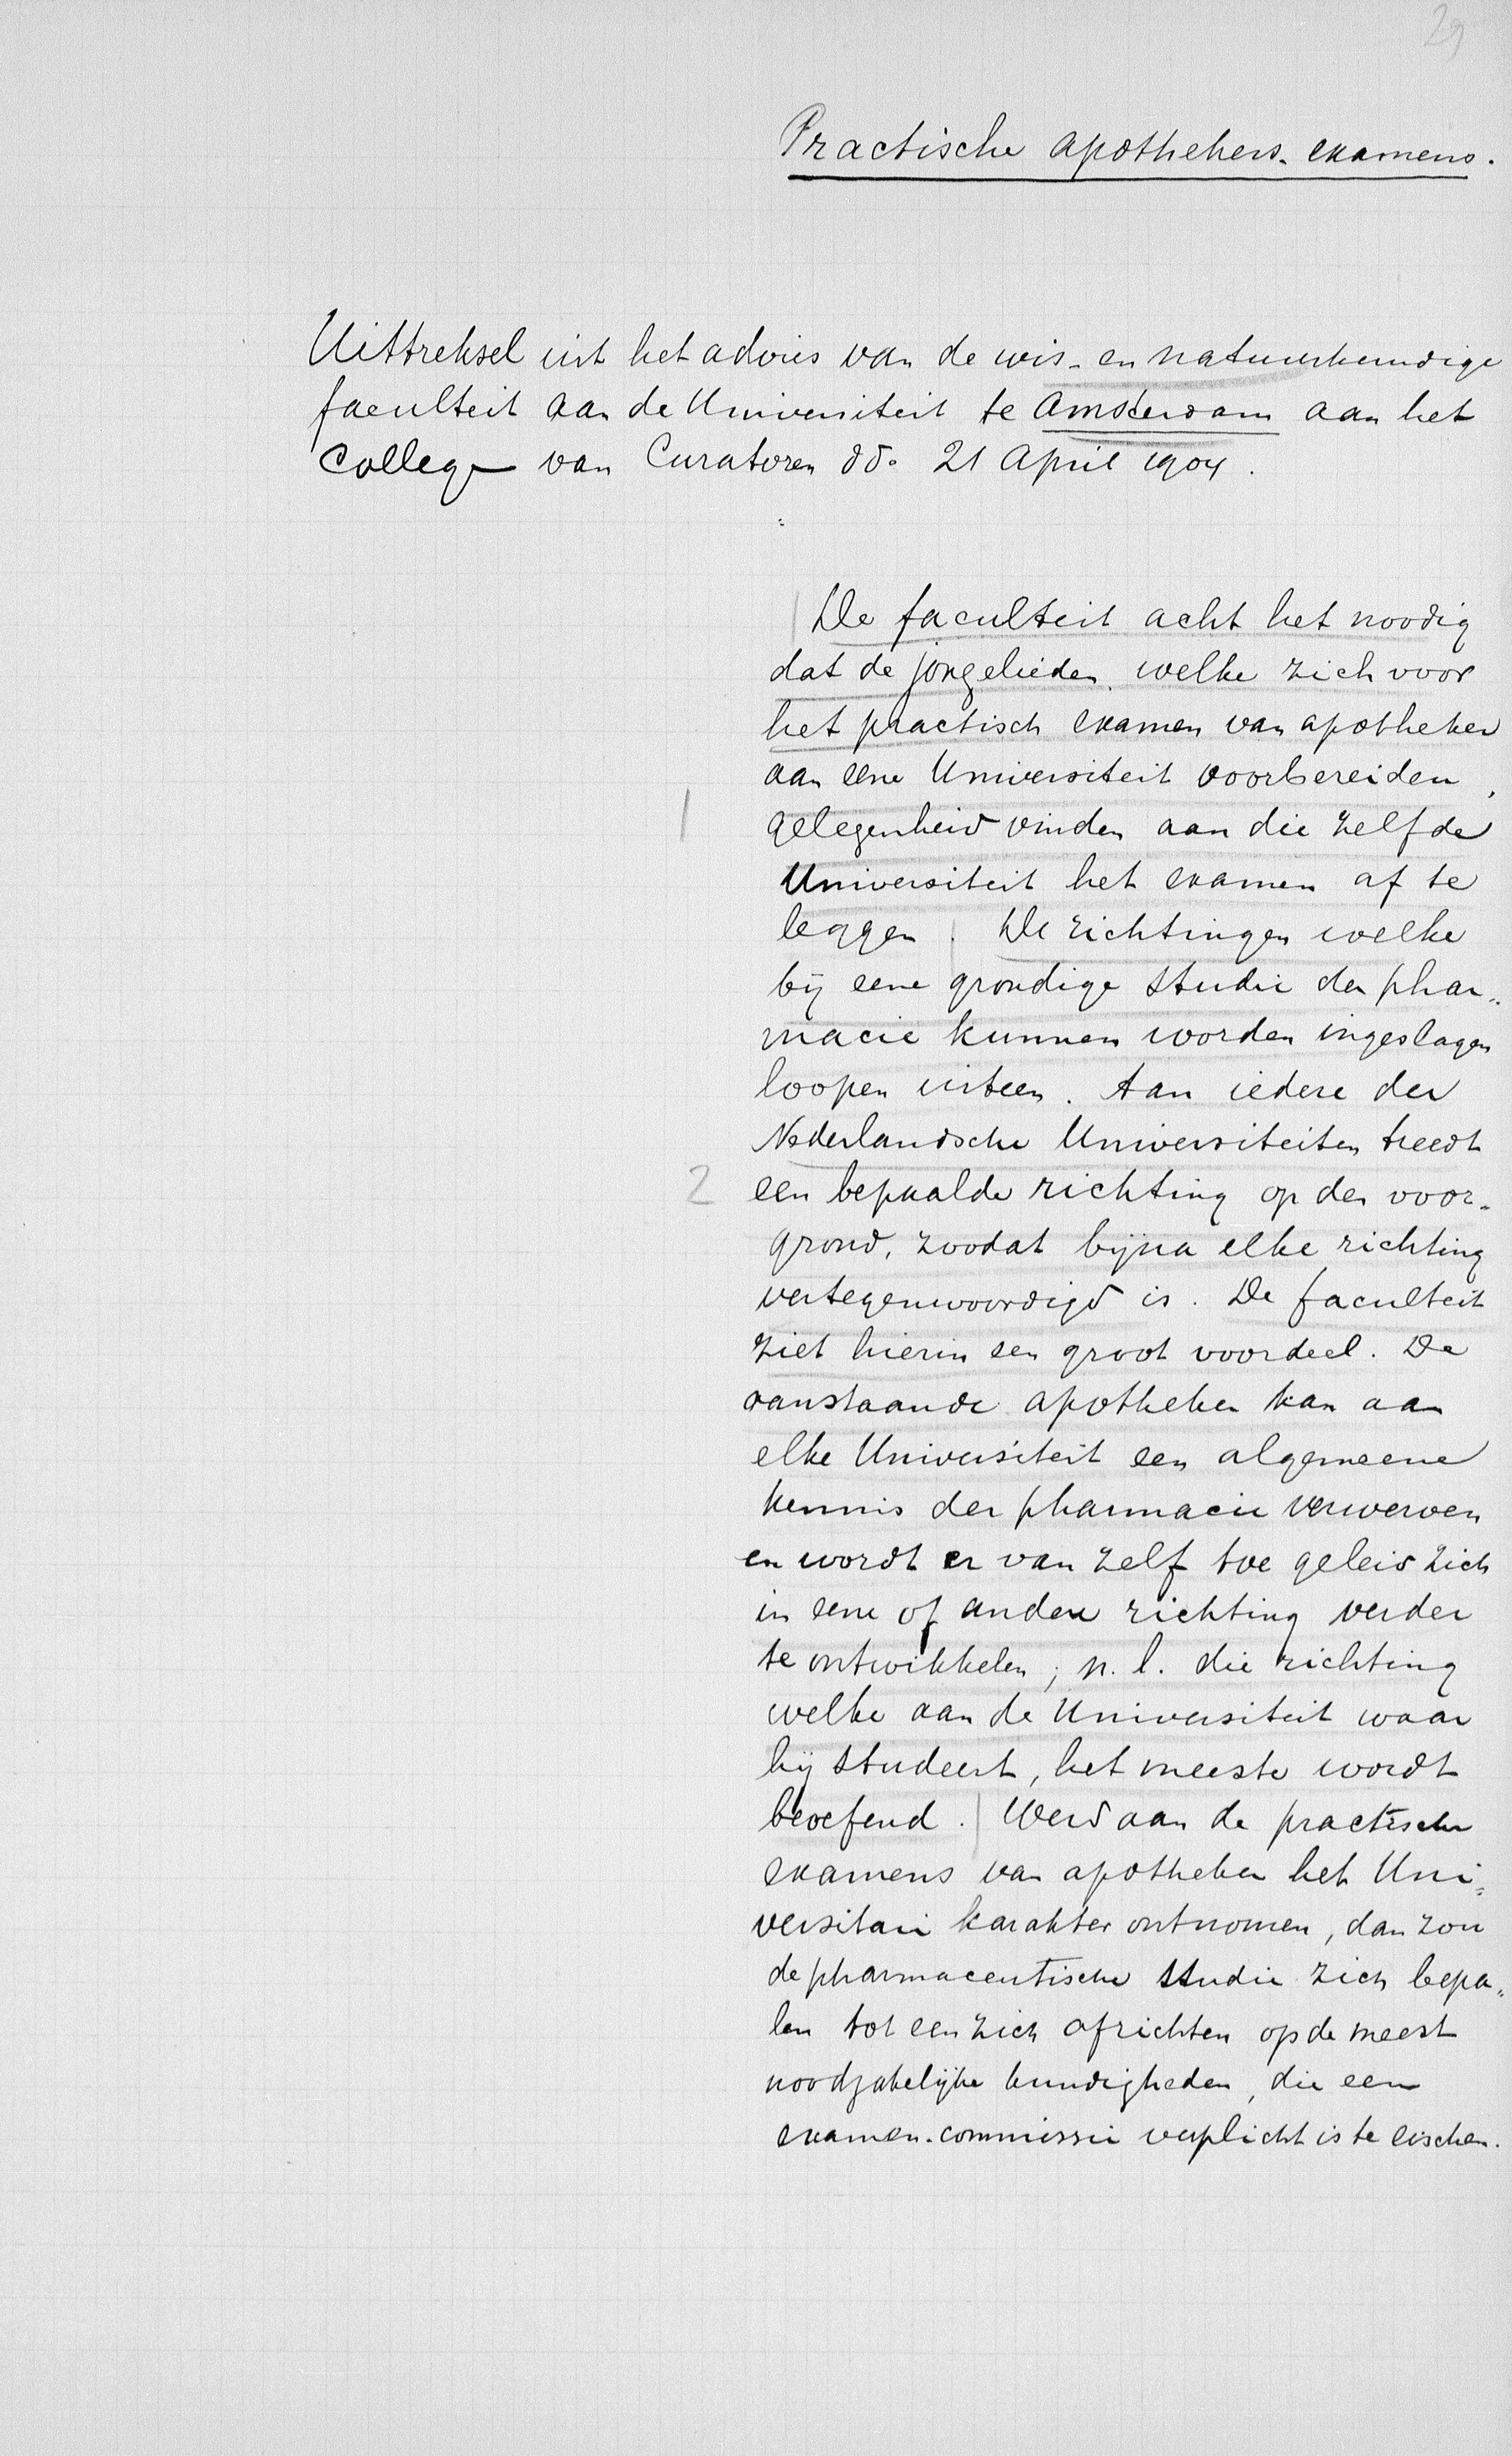 29
Practische apothekers-examens.
Uittreksel uit het advies van de wis- en natuurkundige
faculteit aan de Universiteit te Amsterdam aan het
College van Curatoren dd. 21 April 1904.
De faculteit acht het noodig
dat de jongelieden, welke zich voor
het practisch examen van apotheker
aan eene Universiteit voorbereiden,
1
gelegenheid vinden aan die zelfde
Universiteit het examen af te
leggen. De richtingen welke
bij eene grondige studie der phar„
macie kunnen worden ingeslagen
loopen uiteen. Aan iedere der
Nederlandsche Universiteiten treedt
2
een bepaalde richting op den voor„
grond, zoodat bijna elke richting
vertegenwoordigd is. De faculteit
ziet hierin een groot voordeel. De
aanstaande apotheker kan aan
elke Universiteit een algemeene
kennis der pharmacie verwerven
en wordt er van zelf toe geleid zich
in eene of andere richting verder
te ontwikkelen; n.l. die richting
welke aan de Universiteit waar
hij studeert, het meeste wordt
beoefend. Werd aan de practische
examens van apotheker het Uni„
versitair karakter ontnomen, dan zou
de pharmaceutische studie zich bepa„
len tot een zich africhten op de meest
noodzakelijke kundigheden, die een
examen-commissie verplicht is te eischen.